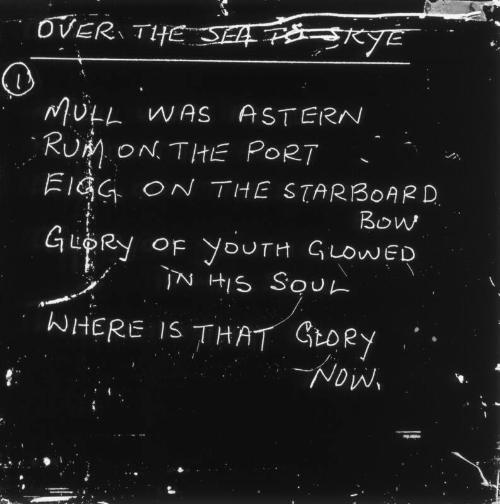 OVER THE SEA TO SKYE
1
MULL WAS ASTERN
RUM ON THE PORT
EIGG ON THE STARBOARD
BOW
GLORY OF YOUTH GLOWED
IN HIS SOUL
WHERE IS THAT GLORY
NOW.